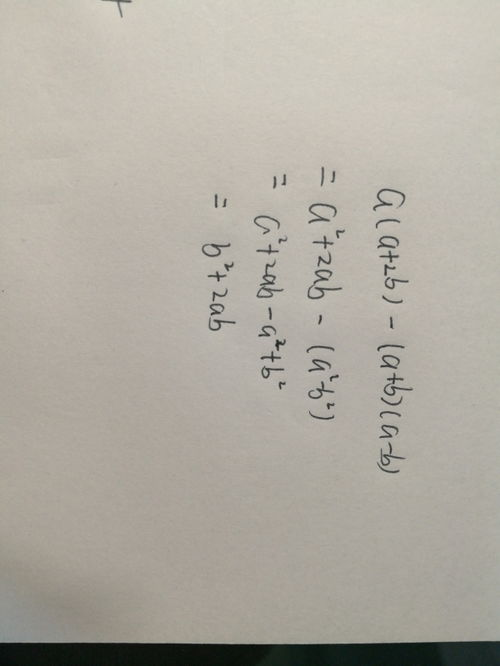 a(a+2b)-(a+b)(a-b)
=a²+2ab-(a²-b²)
=a²+2ab-a²+b²
=b²+2ab